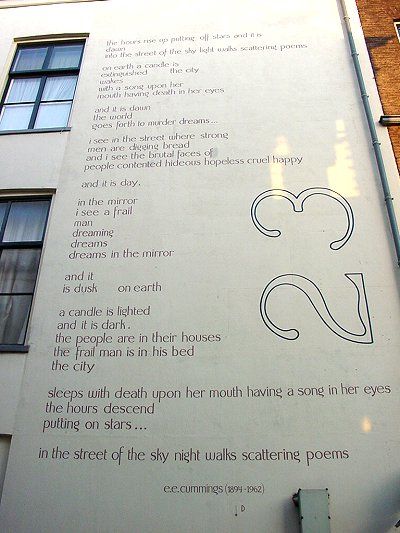 the hours rise up putting off stars and it is
dawn
into the street of the sky light walks scattering poems
on earth a candle is
extinguished the city
wakes
with a song upon her
mouth having death in her eyes
and it is dawn
the world
goes forth to murder dreams...
i see in the street where strong
men are digging bread
and i see the brutal faces of
people contented hideous hopeless cruel happy
and it is day.
in the mirror
i see a frail
man
dreaming
dreams
dreams in the mirror
and it
is dusk on earth
a candle is lighted
and it is dark.
the people are in their houses
the frail man is in his bed
the city
sleeps with death upon her mouth having a song in her eyes
the hours descend
putting on stars...
in the street of the sky night walks scattering poems
e.e.cummings (1894-1962)
23